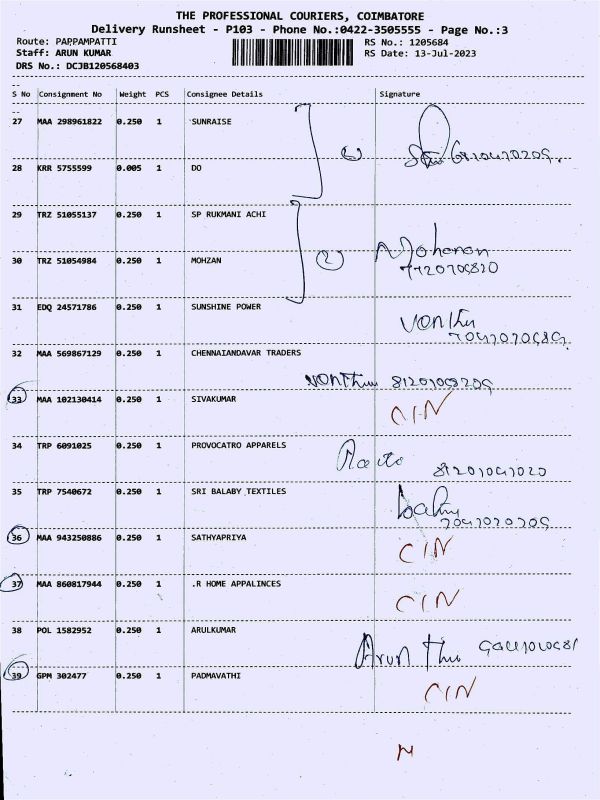 THE PROFESSIONAL COURIERS, COIMBATORE
Delivery Runsheet - P103 - Phone No.:0422-3505555 - Page No.:3
Route: PAPPAMPATTI RS No.: 1205684
Staff: ARUN KUMAR RS Date: 13-Jul-2023
DRS No.: DCJB120568403
S No Consignment No Weight PCS Consignee Details Signature
27 MAA 298961822 0.250 1 SUNRAISE
28 KRR 5755599 0.005 1 DO
29 TRZ 51055137 0.250 1 SP RUKMANI ACHI
30 TRZ 51054984 0.250 1 MOHZAN Mohanan
31 EDQ 24571786 0.250 1 SUNSHINE POWER
32 MAA 569867129 0.250 1 CHENNAIANDAVAR TRADERS
33 MAA 102130414 0.250 1 SIVAKUMAR CIN
34 TRP 6091025 0.250 1 PROVOCATRO APPARELS
35 TRP 7540672 0.250 1 SRI BALABY TEXTILES
36 MAA 943250886 0.250 1 SATHYAPRIYA CIN
37 MAA 860817944 0.250 1 .R HOME APPALINCES CIN
38 POL 1582952 0.250 1 ARULKUMAR Arun
39 GPM 302477 0.250 1 PADMAVATHI CIN